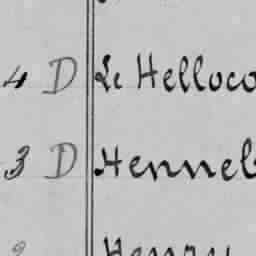 4 D Le Helloco
3 D Henneb
Henry